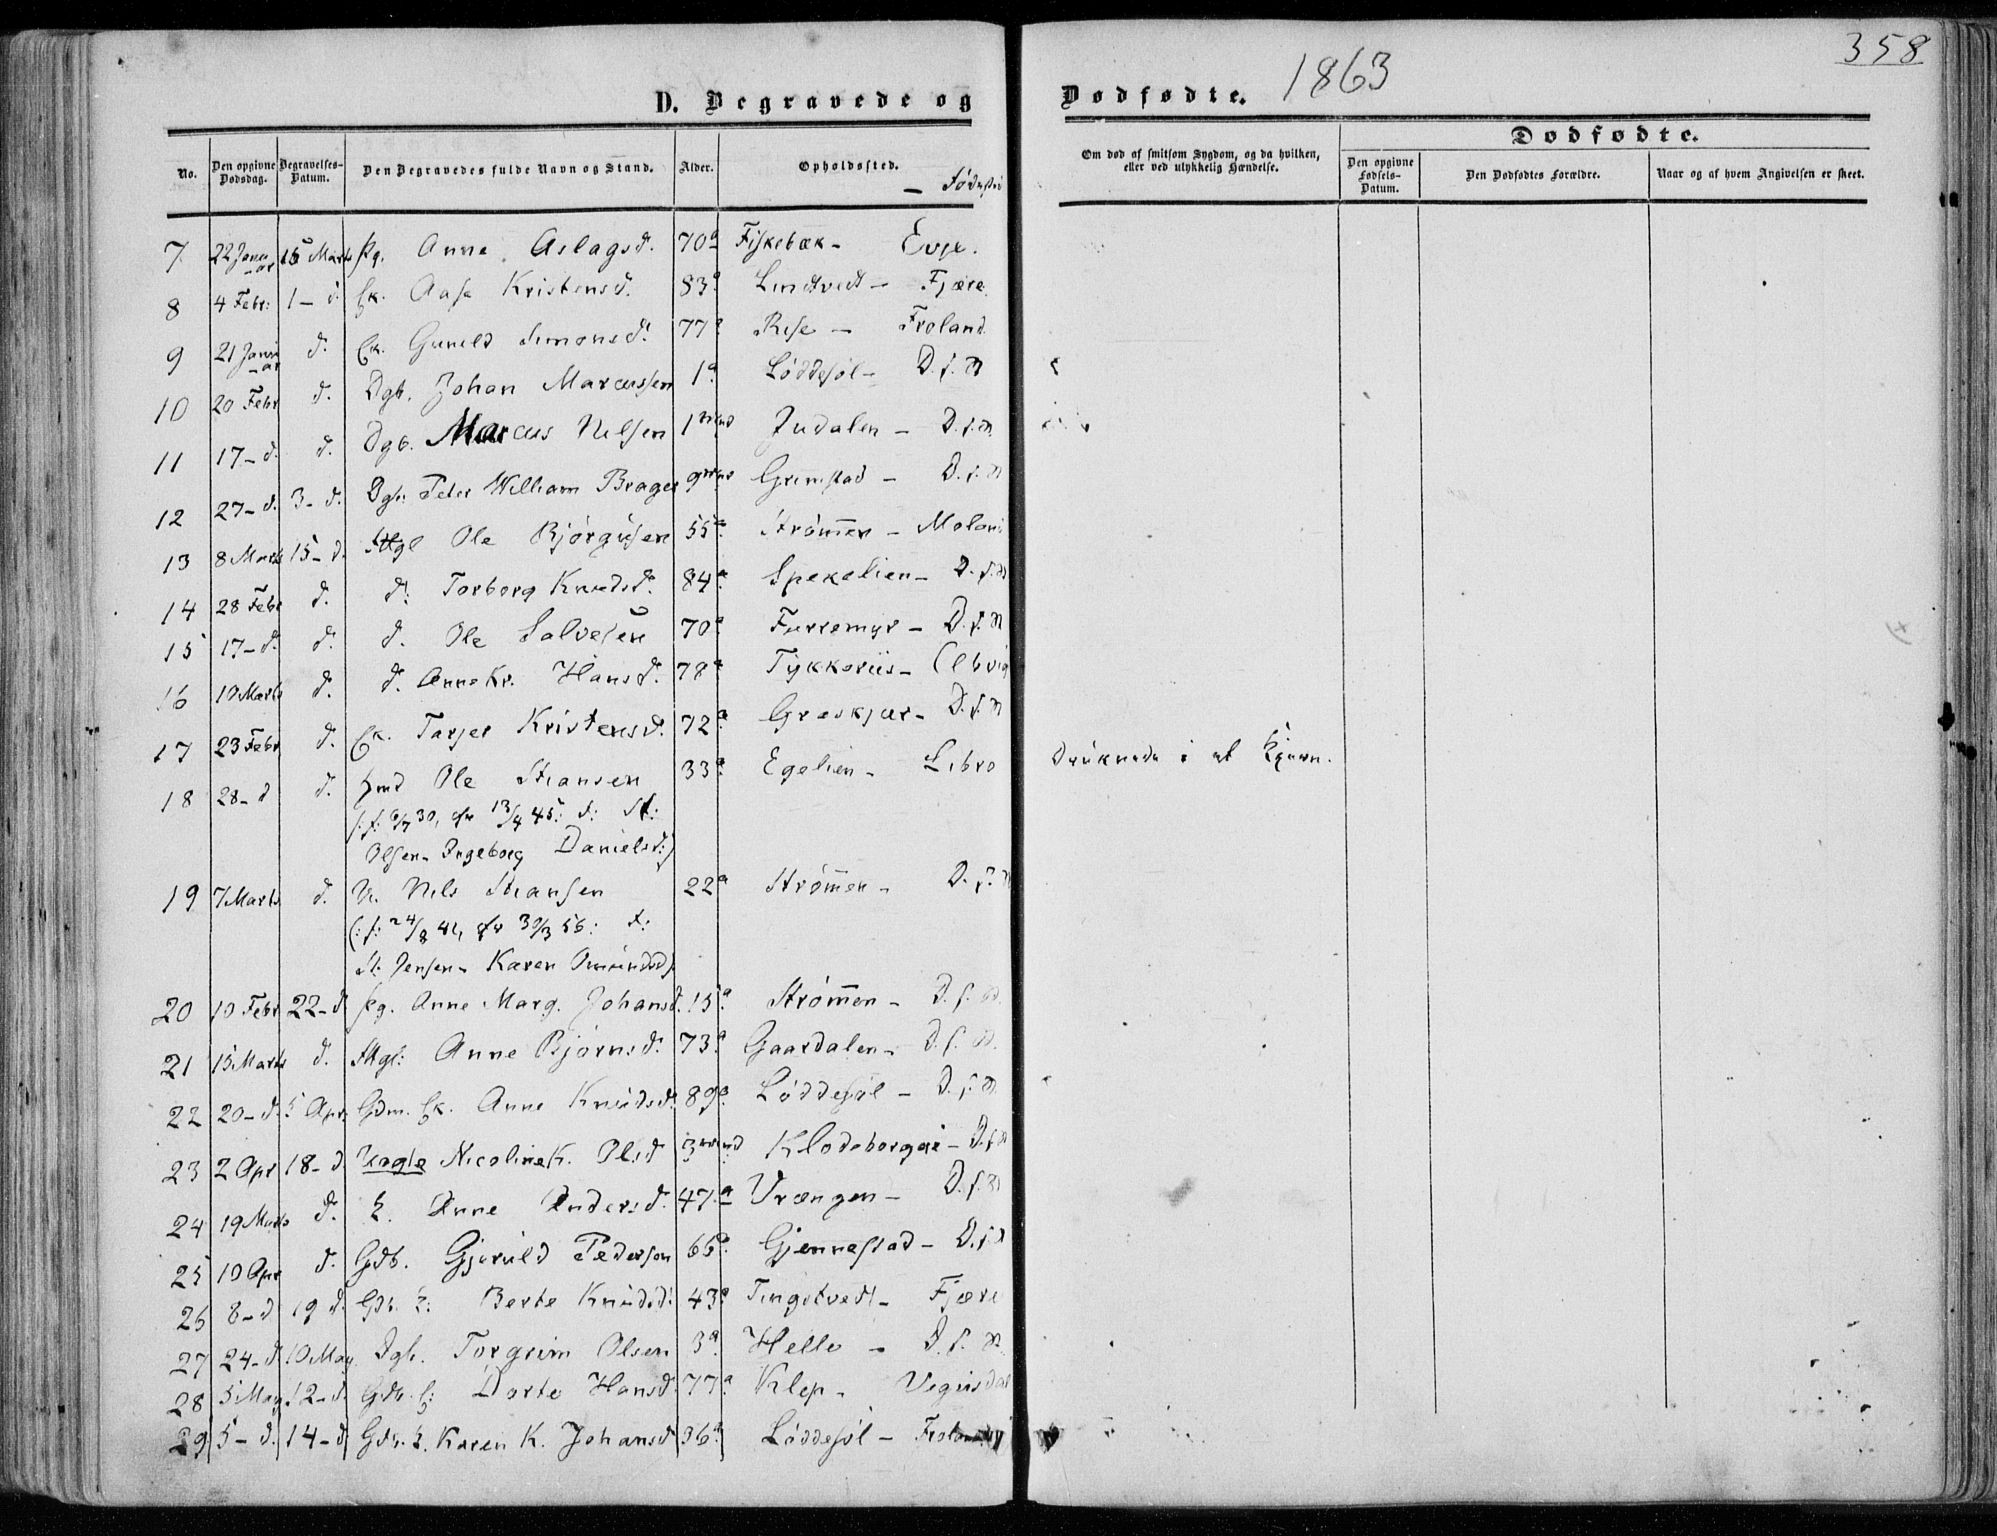 358
1863
D. Begravede og Dødfødte.
Dødfødte.
No.
Den opgivne Dødsdag.
Begravelses-Datum.
Den Begravedes fulde Navn og Stand.
Alder.
Opholdssted.
Om død af smitsom Sygdom, og da hvilken, eller ved ulykkelig Hændelse.
Den opgivne Fødsels-Datum.
Den Dødfødtes Forældre.
Naar og af hvem Angivelsen er skeet.
7 22 Januar 15 Marts Pg. Anne Aslagsd. 70 a Fiskebæk - Evje.
8 4 Febr. 1 - d. Ek. Aase Kristensd. 83 a Lindtvedt - Fjære
9 21 Januar d. Ek. Gunild Simonsd. 77 a Rise - Froland
10 20 Febr d. Dgb. Johan Marcussen 1 a Løddesøl - D.s.
11 17 - d. d. Dgb. Marcus Nilsen 1 mnd Judalen - D.s.
12 27 - d. 3 - d. Dgb. Peter William Brager 9 Grimstad - D.s.
13 8 Marts 15 - d. Ole Bjørgusen 55 a Strømmen - Moland
14 28 Febr d. d. Torborg Knudsd. 84 a Spekelien - D.s.
15 17 - d. d. d. Ole Salvesen 70 a Furremyr - D.s.
16 10 Marts d. d. Anne Kr. Hansd. 78 a Tykkeriis -
17 23 Febr d. Ek. Tarjer Kristensd. 72 a Greskjær - D.s.
18 28 - d d. Ole Stiansen 33 a Egelien - Druknede i et Kjærn.
30, 13/4 45: d: St:
Olsen - Ingeborg Danielsd:)
19 7 Marts d. U. Nils Stiansen 22 a Strømmen - D.s.
(:f: 24/8 41, 30/3 56: d:
St. Jensen - Karen
20 10 Febr 22 - d. Pg. Anne Marg. Johansd. 15 a Strømmen - D.s.
21 15 Marts d. Anne Bjørnsd. 73 a Gaardalen - D.s.
22 20 - d. 5 Apr. Gdm. Ek. Anne Knudsd. 89 a Løddesøl - D.s.
23 2 Apr 18 - d Nicoline K. Olsd 3 mnd Klodeborgei - D.s.
24 19 Marts d. E. Anne Andersd. 47 a Vrængen - D.s.
25 10 Apr d. Gdb. Gjeruld Pedersen 66 Gjennestad - D.s.
26 8 - d 19 d. Gb. E: Berte Knudsd. 43 a Tingstvedt - Fjære
27 24 - d 10 May Dgb. Torgrim Olsen 3 a Helle - D.s.
28 5 May 12 - d Gdb. E: Dorte Hansd. 77 a Klep - Vegusdal
29 5 - d. 14 - d Gdb. E. Karen K. Johansd 36 a Løddesøl - Froland